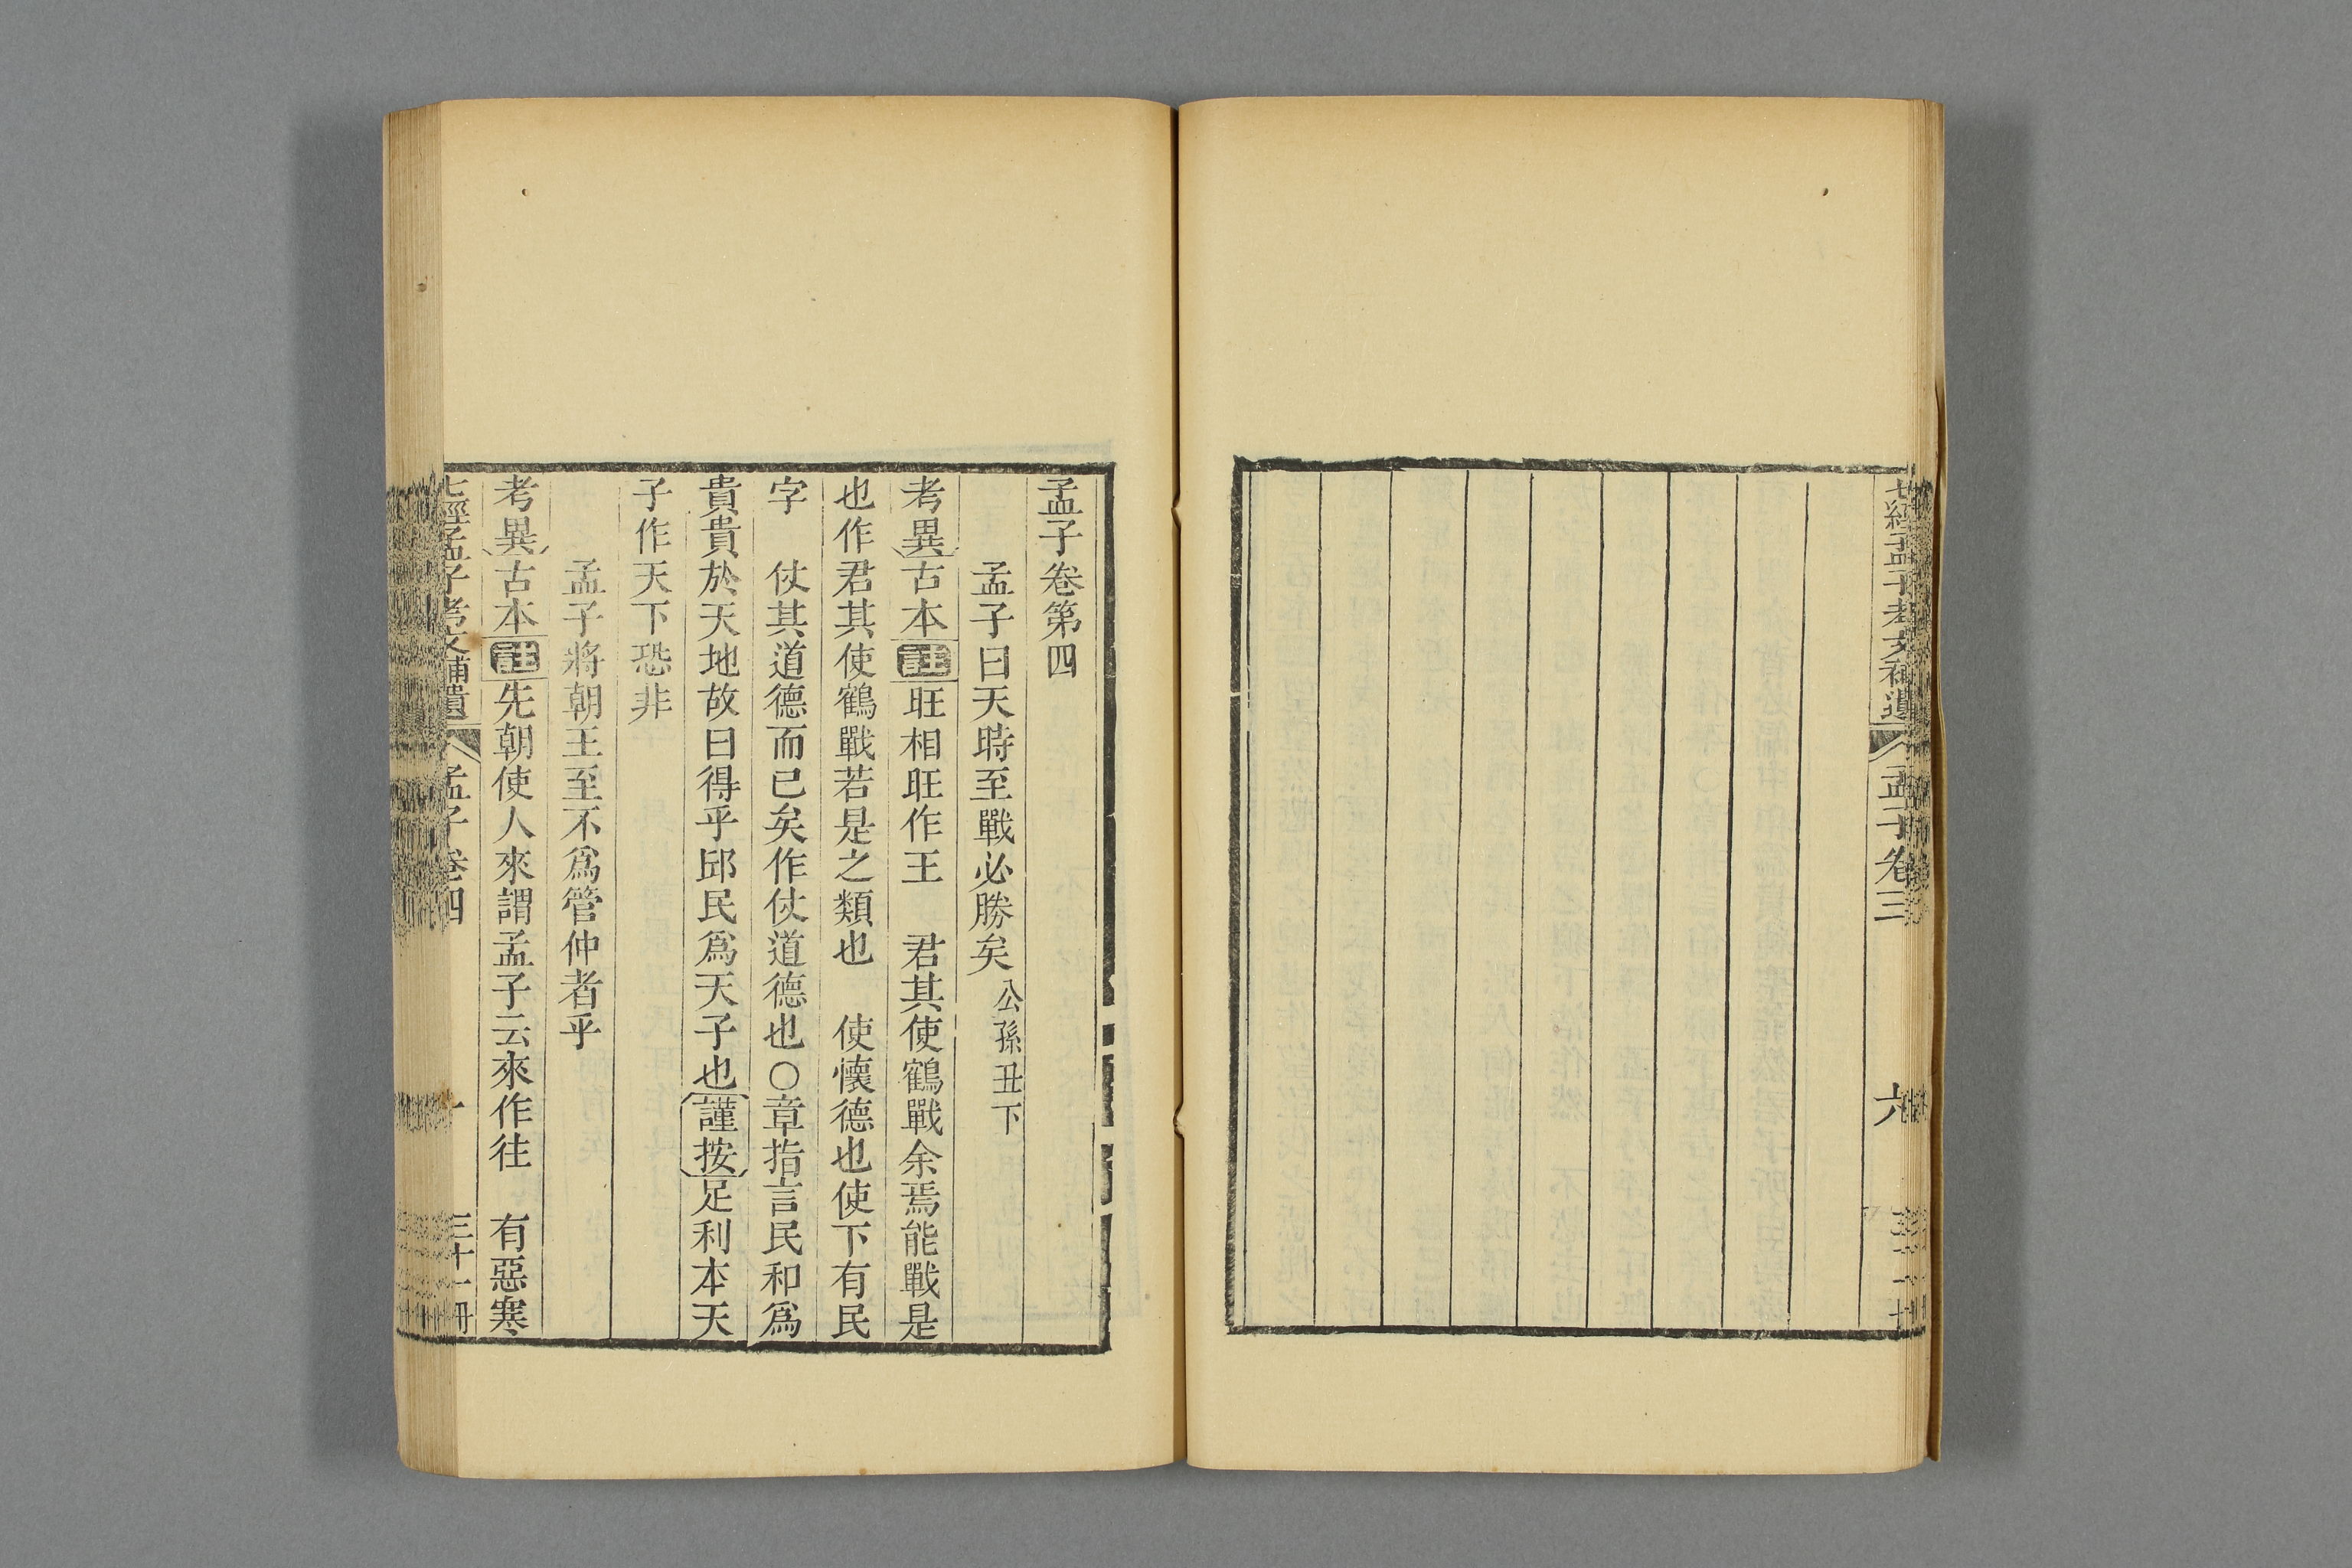 七經孟子考文補遺 孟子卷三 六
孟子卷第四
孟子曰天時至戰必勝矣 公孫丑下
考異古本註旺相旺作王 君其使鶴戰余焉能戰是
也作君其使鶴戰若是之類也 使懷德也使下有民
字 仗其道德而已矣作仗道德也○章指言民和爲
貴貴於天地故曰得乎邱民爲天子也謹按足利本天
子作天下恐非
孟子將朝王至不爲管仲者乎
考異古本註先朝使人來謂孟子云來作往 有惡寒
七經孟子考文補遺 孟子卷四 一 三十一册